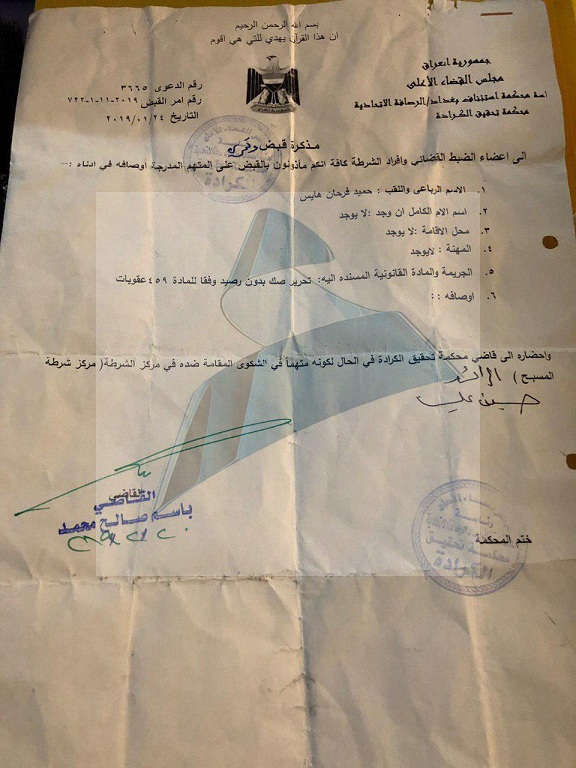 بسم الله الرحمن الرحيم
ان هذا القرآن يهدي للتي هي اقوم
جمهورية العراق
مجلس القضاء الأعلى
محكمة استئناف بغداد/الرصافة الاتحادية
محكمة تحقيق الكرادة
رقم الدعوى ٣٦٦٥
رقم امر القبض ٢٠١٩-١١-١-٧٢٢
التاريخ ٢٠١٩/٠١/٢٤
مذكرة قبض
الى اعضاء الضبط القضائي وافراد الشرطة كافة انكم مأذونون بالقبض على المتهم المدرجة اوصافه في ادناه :-
١. الاسم الرباعي واللقب : حميد فرحان هايس
٢. اسم الام الكامل ان وجد :لا يوجد
٣. محل الاقامة :لا يوجد
٤. المهنة :لايوجد
٥. الجريمة والمادة القانونية المسنده اليه: تحرير صك بدون رصيد وفقا للمادة ٤٥٩ عقوبات
٦. اوصافه ::
واحضاره الى قاضي محكمة تحقيق الكرادة في الحال لكونه متهماً في الشكوى المقامة ضده في مركز الشرطة( مركز شرطة
المسبح )
حسين علي
القاضي
القاضي
باسم صالح محمد
ختم المحكمة
محكمة تحقيق
الكرادة